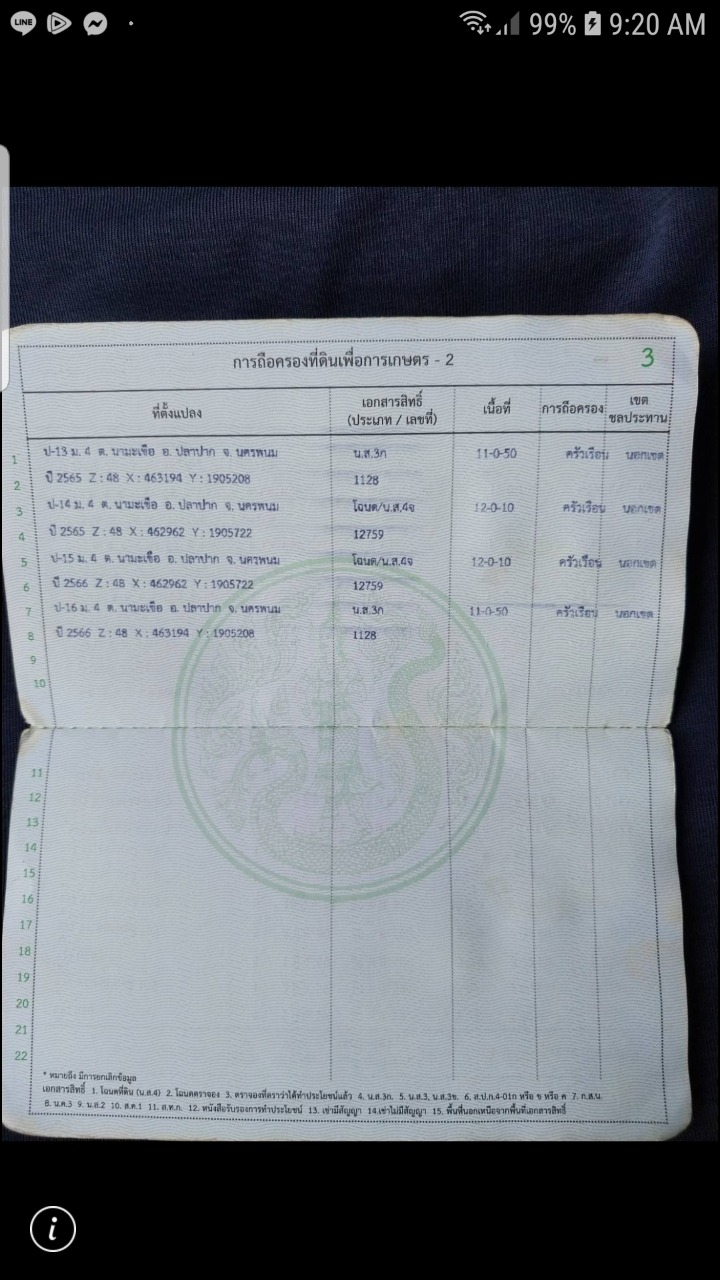 LINE 99% 9:20 AM
การถือครองที่ดินเพื่อการเกษตร - 2 3
ที่ตั้งแปลง เอกสารสิทธิ์ (ประเภท / เลขที่) เนื้อที่ การถือครอง เขตชลประทาน
1 ป-13 ม. 4 ต. นามะเขือ อ. ปลาปาก จ. นครพนม น.ส.3ก 11-0-50 ครัวเรือน นอกเขต
2 ปี 2565 Z : 48 X : 463194 Y : 1905208 1128
3 ป-14 ม. 4 ต. นามะเขือ อ. ปลาปาก จ. นครพนม โฉนด/น.ส.4จ 12-0-10 ครัวเรือน นอกเขต
4 ปี 2565 Z : 48 X : 462962 Y : 1905722 12759
5 ป-15 ม. 4 ต. นามะเขือ อ. ปลาปาก จ. นครพนม โฉนด/น.ส.4จ 12-0-10 ครัวเรือน นอกเขต
6 ปี 2566 Z : 48 X : 462962 Y : 1905722 12759
7 ป-16 ม. 4 ต. นามะเขือ อ. ปลาปาก จ. นครพนม น.ส.3ก 11-0-50 ครัวเรือน นอกเขต
8 ปี 2566 Z : 48 X : 463194 Y : 1905208 1128
9
10
11
12
13
14
15
16
17
18
19
20
21
22
* หมายถึง มีการยกเลิกข้อมูล
เอกสารสิทธิ์ 1. โฉนดที่ดิน (น.ส.4) 2. โฉนดตราจอง 3. ตราจองที่ตราว่าได้ทำประโยชน์แล้ว 4. น.ส.3ก. 5. น.ส.3, น.ส.3ข. 6. ส.ป.ก.4-01ก หรือ ข หรือ ค 7. ก.ส.น.
8. น.ค.3 9. น.ส.2 10. ส.ค.1 11. ส.ท.ก. 12. หนังสือรับรองการทำประโยชน์ 13. เช่ามีสัญญา 14.เช่าไม่มีสัญญา 15. พื้นที่นอกเหนือจากพื้นที่เอกสารสิทธิ์